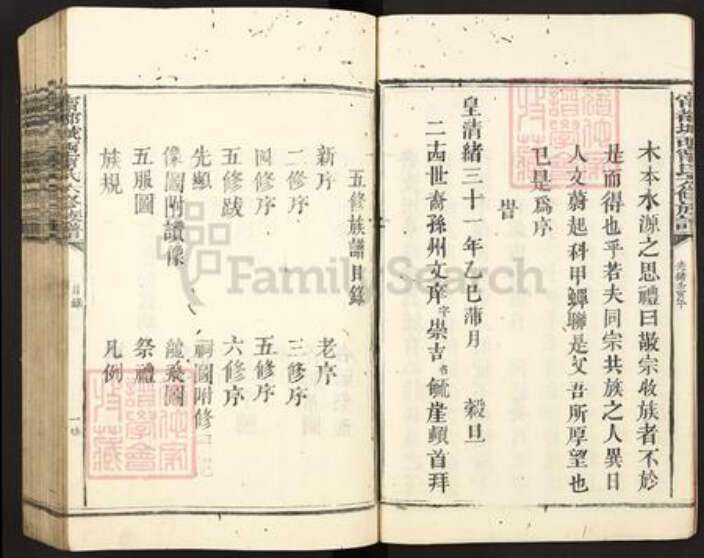 木本水源之思禮曰敬宗收族者不於
是而得也乎若夫同宗共族之人異日
人文蔚起科甲蟬聯是又吾所厚望也
已是爲序
峕
皇清緒三十一年乙巳蒲月 穀旦
二十四世裔孫州文庠字崇吉名毓崖頓首拜
五修族譜目錄
新序 老序
二修序 三修序
四修序 五修序
五修跋 六修序
先顯 祠圖附修
像圖附讚像 龍飛圖
五服圖 祭禮
族規 凡例
目錄
FamilySearch